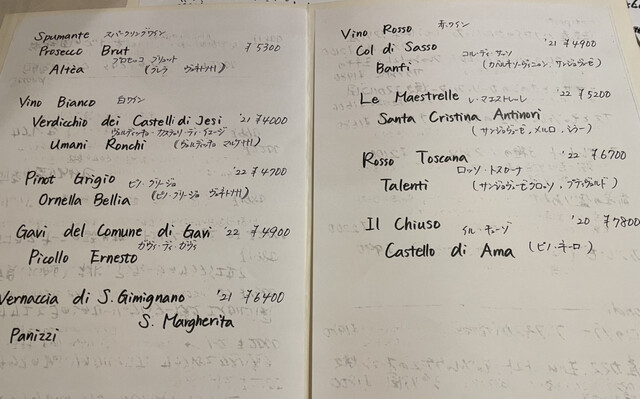 Spumante スパークリングワイン
Prosecco Brut ¥5300
プロセッコ ブリュット
Altèa (グレラ ヴェネト州)
Vino Bianco 白ワイン
Verdicchio dei Castelli di Jesi '21 ¥4000
ヴェルディッキオ・カステッリ・ディ・イエージ
Umani Ronchi (ヴェルディッキオ マルケ州)
Pinot Grigio '22 ¥4700
ピノ・グリージョ
Ornella Bellia (ピノ・グリージョ ヴェネト州)
Gavi del Comune di Gavi '22 ¥4900
ガヴィ・ディ・ガヴィ
Picollo Ernesto
Vernaccia di S. Gimignano '21 ¥6400
S. Margherita
Panizzi
Vino Rosso 赤ワイン
Col di Sasso '21 ¥4900
コル・ディ・サッソ
Banfi (カベルネソーヴィニョン、サンジョヴェーゼ)
Le Maestrelle レ・マエストレーレ '22 ¥5200
Santa Cristina Antinori
(サンジョヴェーゼ、メルロ、シラー)
Rosso Toscana '22 ¥6700
ロッソ・トスカーナ
Talenti (サンジョヴェーゼグロッソ、プティヴェルド)
Il Chiuso イル・キューゾ '20 ¥7800
Castello di Ama (ピノ・ネーロ)